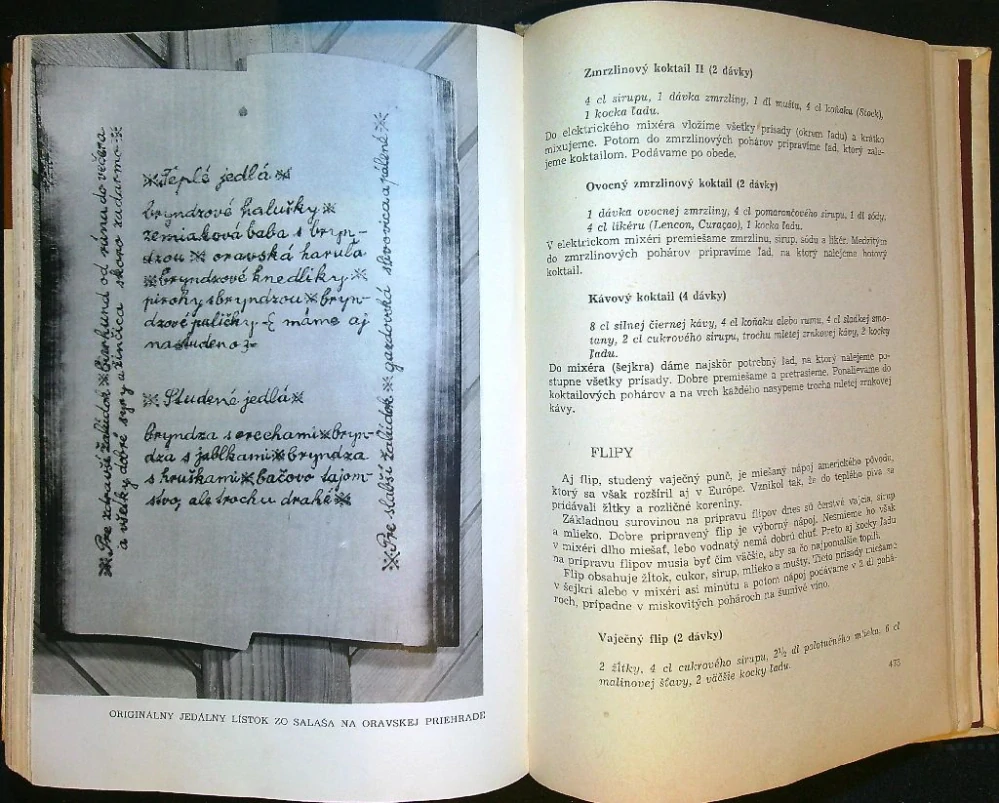 ※Teplé jedlá※
bryndzové halušky※
zemiaková baba s bryn-
dzou※oravská haruľa
※bryndzové knedlíky※
pirohy s bryndzou※bryn-
dzové paličky - máme aj
na studeno
※Studené jedlá※
bryndza s orechami※bryn-
dza s jablkami※bryndza
s hruškami※bačovo tajom-
stvo, ale trochu drahé※
※Pre zdravší žalúdok※ od rána do večera
a všetky dobré syry a žinčica skoro zadarmo※
※Pre slabší žalúdok※gazdovská slivovica a pálené※
ORIGINÁLNY JEDÁLNY LÍSTOK ZO SALAŠA NA ORAVSKEJ PRIEHRADE
Zmrzlinový koktail II (2 dávky)
4 cl sirupu, 1 dávka zmrzliny, 1 dl muštu, 4 cl koňaku (Stock),
1 kocka ľadu.
Do elektrického mixéra vložíme všetky prísady (okrem ľadu) a krátko
mixujeme. Potom do zmrzlinových pohárov pripravíme ľad, ktorý zale-
jeme koktailom. Podávame po obede.
Ovocný zmrzlinový koktail (2 dávky)
1 dávka ovocnej zmrzliny, 4 cl pomarančového sirupu, 1 dl sódy,
4 cl likéru (Lencon, Curaçao), 1 kocka ľadu.
V elektrickom mixéri premiešame zmrzlinu, sirup, sódu a likér. Medzitým
do zmrzlinových pohárov pripravíme ľad, na ktorý nalejeme hotový
koktail.
Kávový koktail (4 dávky)
8 cl silnej čiernej kávy, 4 cl koňaku alebo rumu, 4 cl sladkej smo-
tany, 2 cl cukrového sirupu, trochu mletej zrnkovej kávy, 2 kocky
ľadu.
Do mixéra (šejkra) dáme najskôr potrebný ľad, na ktorý nalejeme po-
stupne všetky prísady. Dobre premiešame a pretrasieme. Ponalievame do
koktailových pohárov a na vrch každého nasypeme trocha mletej zrnkovej
kávy.
FLIPY
Aj flip, studený vaječný punč, je miešaný nápoj amerického pôvodu,
ktorý sa však rozšíril aj v Európe. Vznikol tak, že do teplého piva sa
pridávali žĺtky a rozličné koreniny.
Základnou surovinou na prípravu flipov dnes sú čerstvé vajcia, sirup
a mlieko. Dobre pripravený flip je výborný nápoj. Nesmieme ho však
v mixéri dlho miešať, lebo vodnatý nemá dobrú chuť. Preto aj kocky ľadu
na prípravu flipov musia byť čím väčšie, aby sa čo najpomalšie topili.
Flip obsahuje žĺtok, cukor, sirup, mlieko a mušty. Tieto prísady miešame
v šejkri alebo v mixéri asi minútu a potom nápoj podávame v 2 dl pohá-
roch, prípadne v miskovitých pohároch na šumivé víno.
Vaječný flip (2 dávky)
2 žĺtky, 4 cl cukrového sirupu, 2½ dl polotučného mlieka, 6 cl
malinovej šťavy, 2 väčšie kocky ľadu.
473